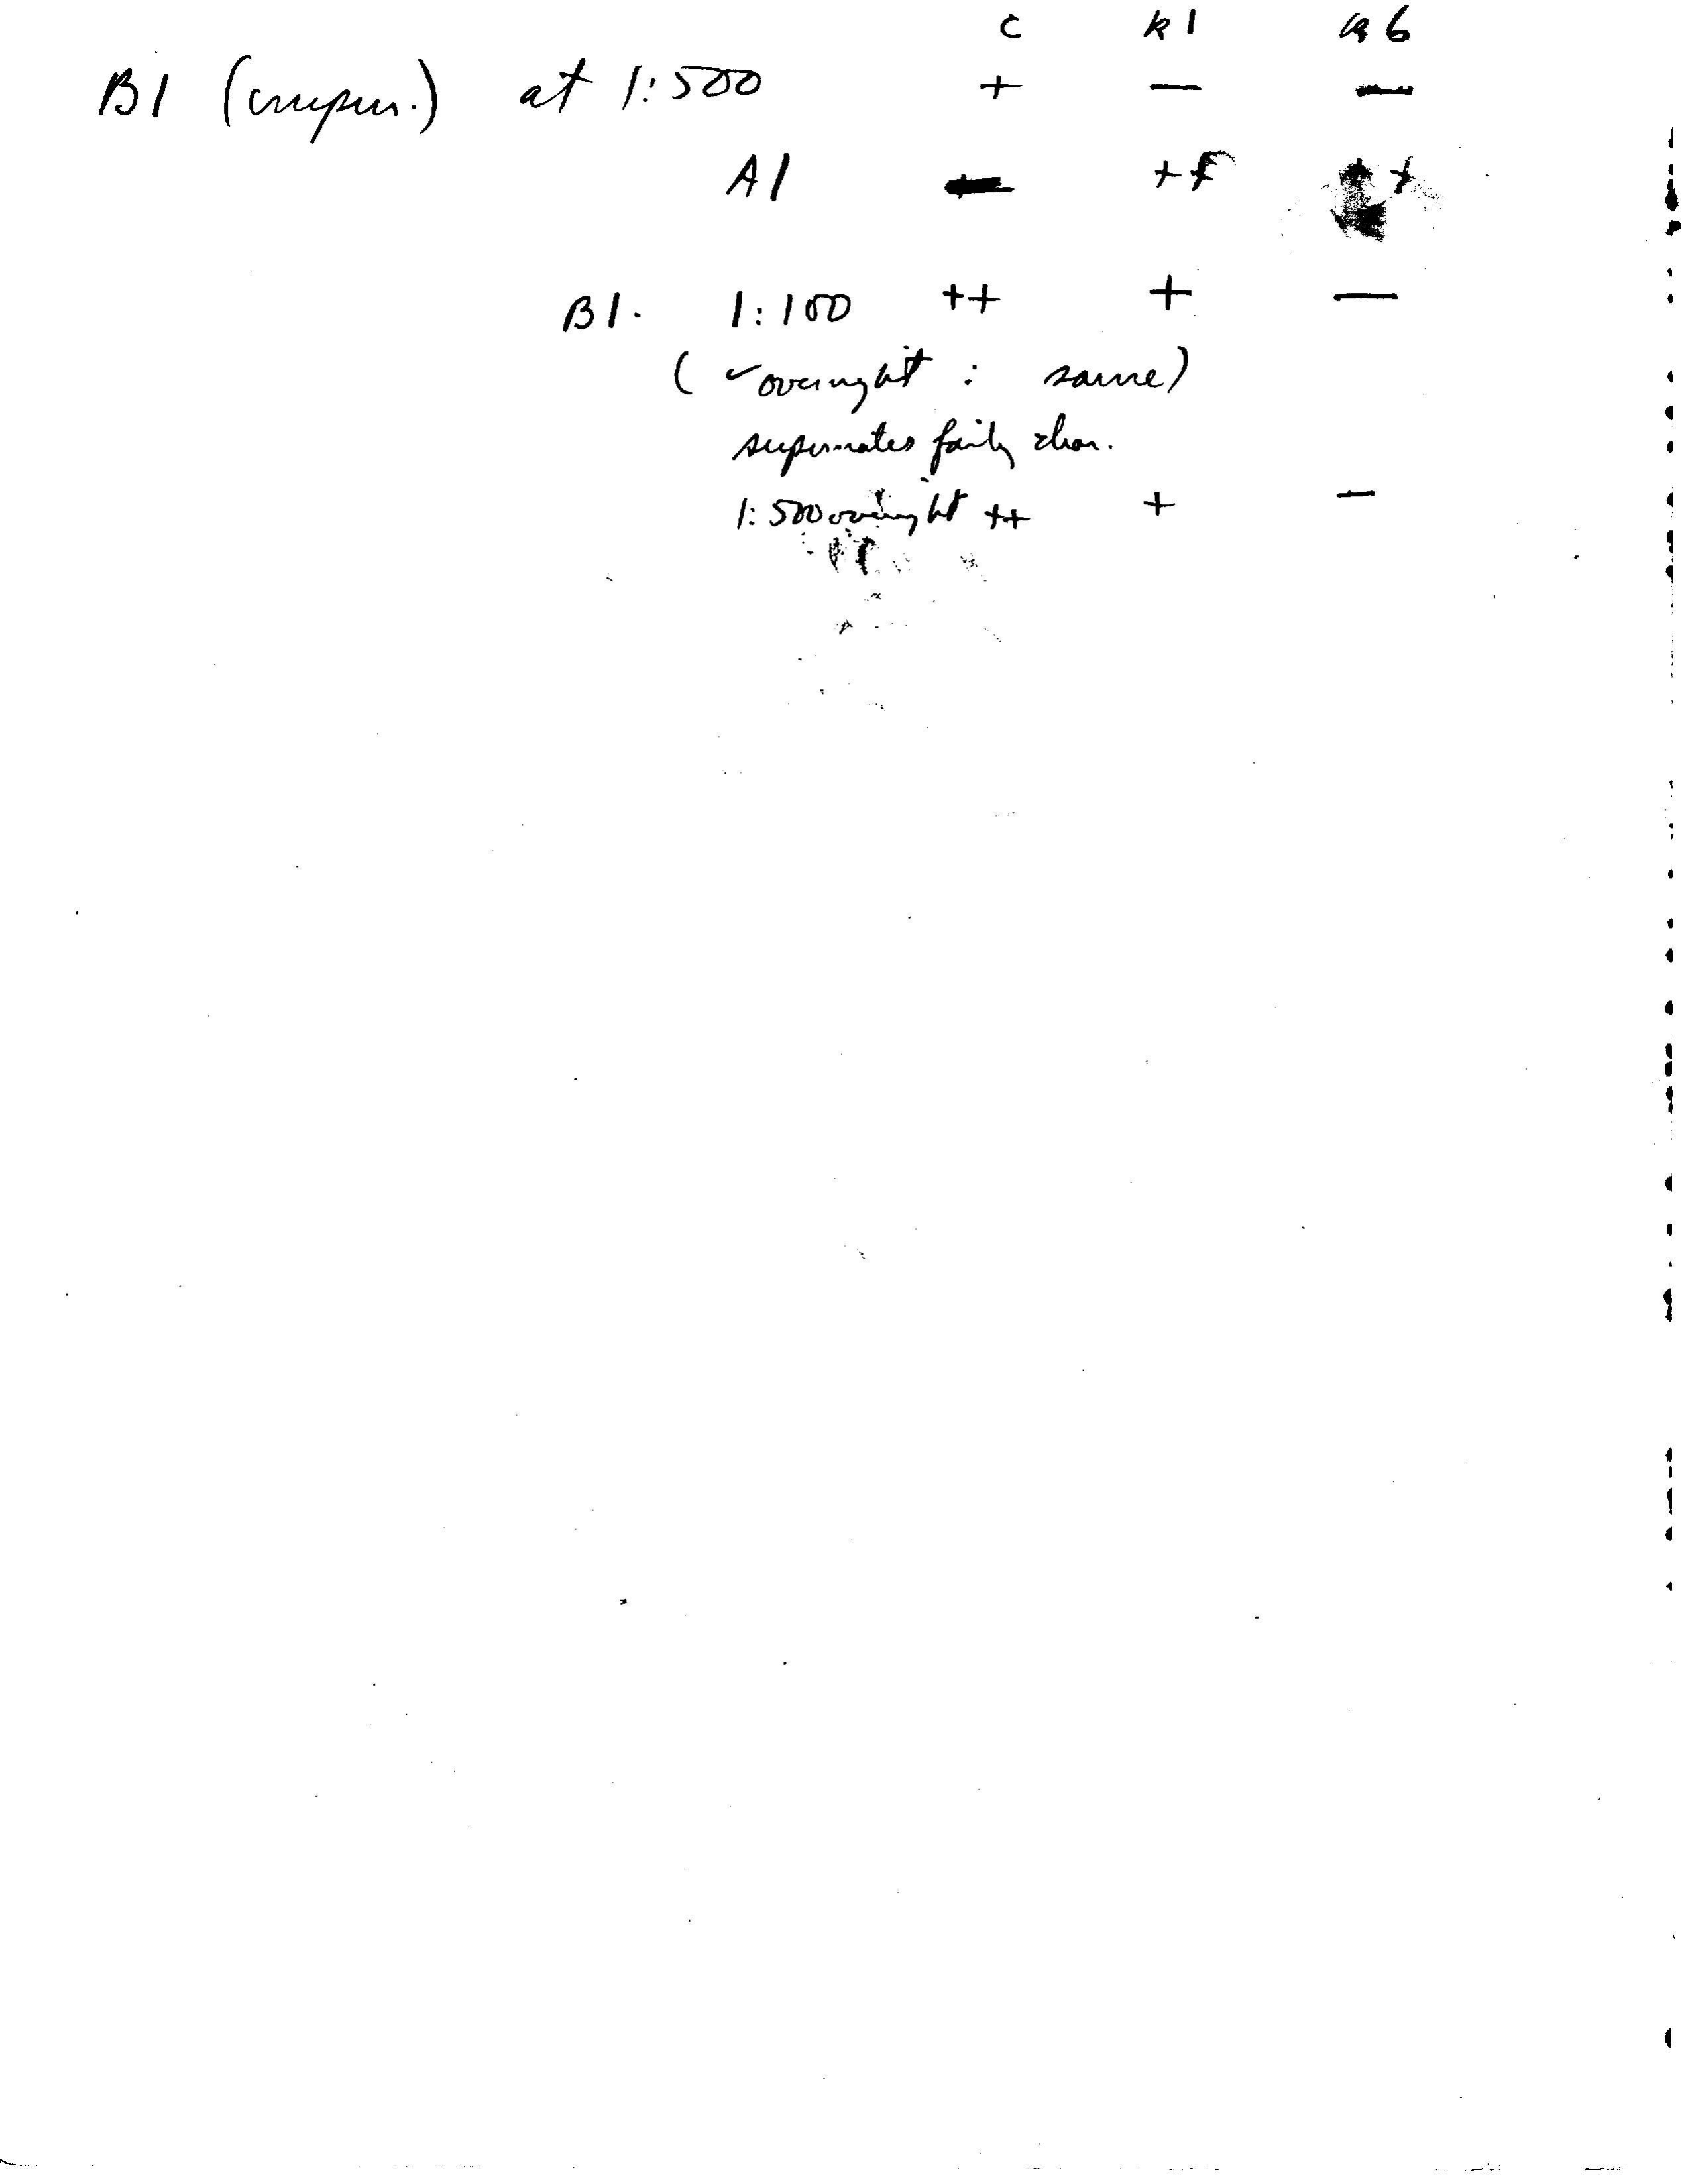 c k1 k6
B1 ( ) at 1:500 + — —
A1 — ++ ++
B1. 1:100 ++ + —
(✓ overnight : same)
supernates fairly clear.
1:500 overnight ++ + —